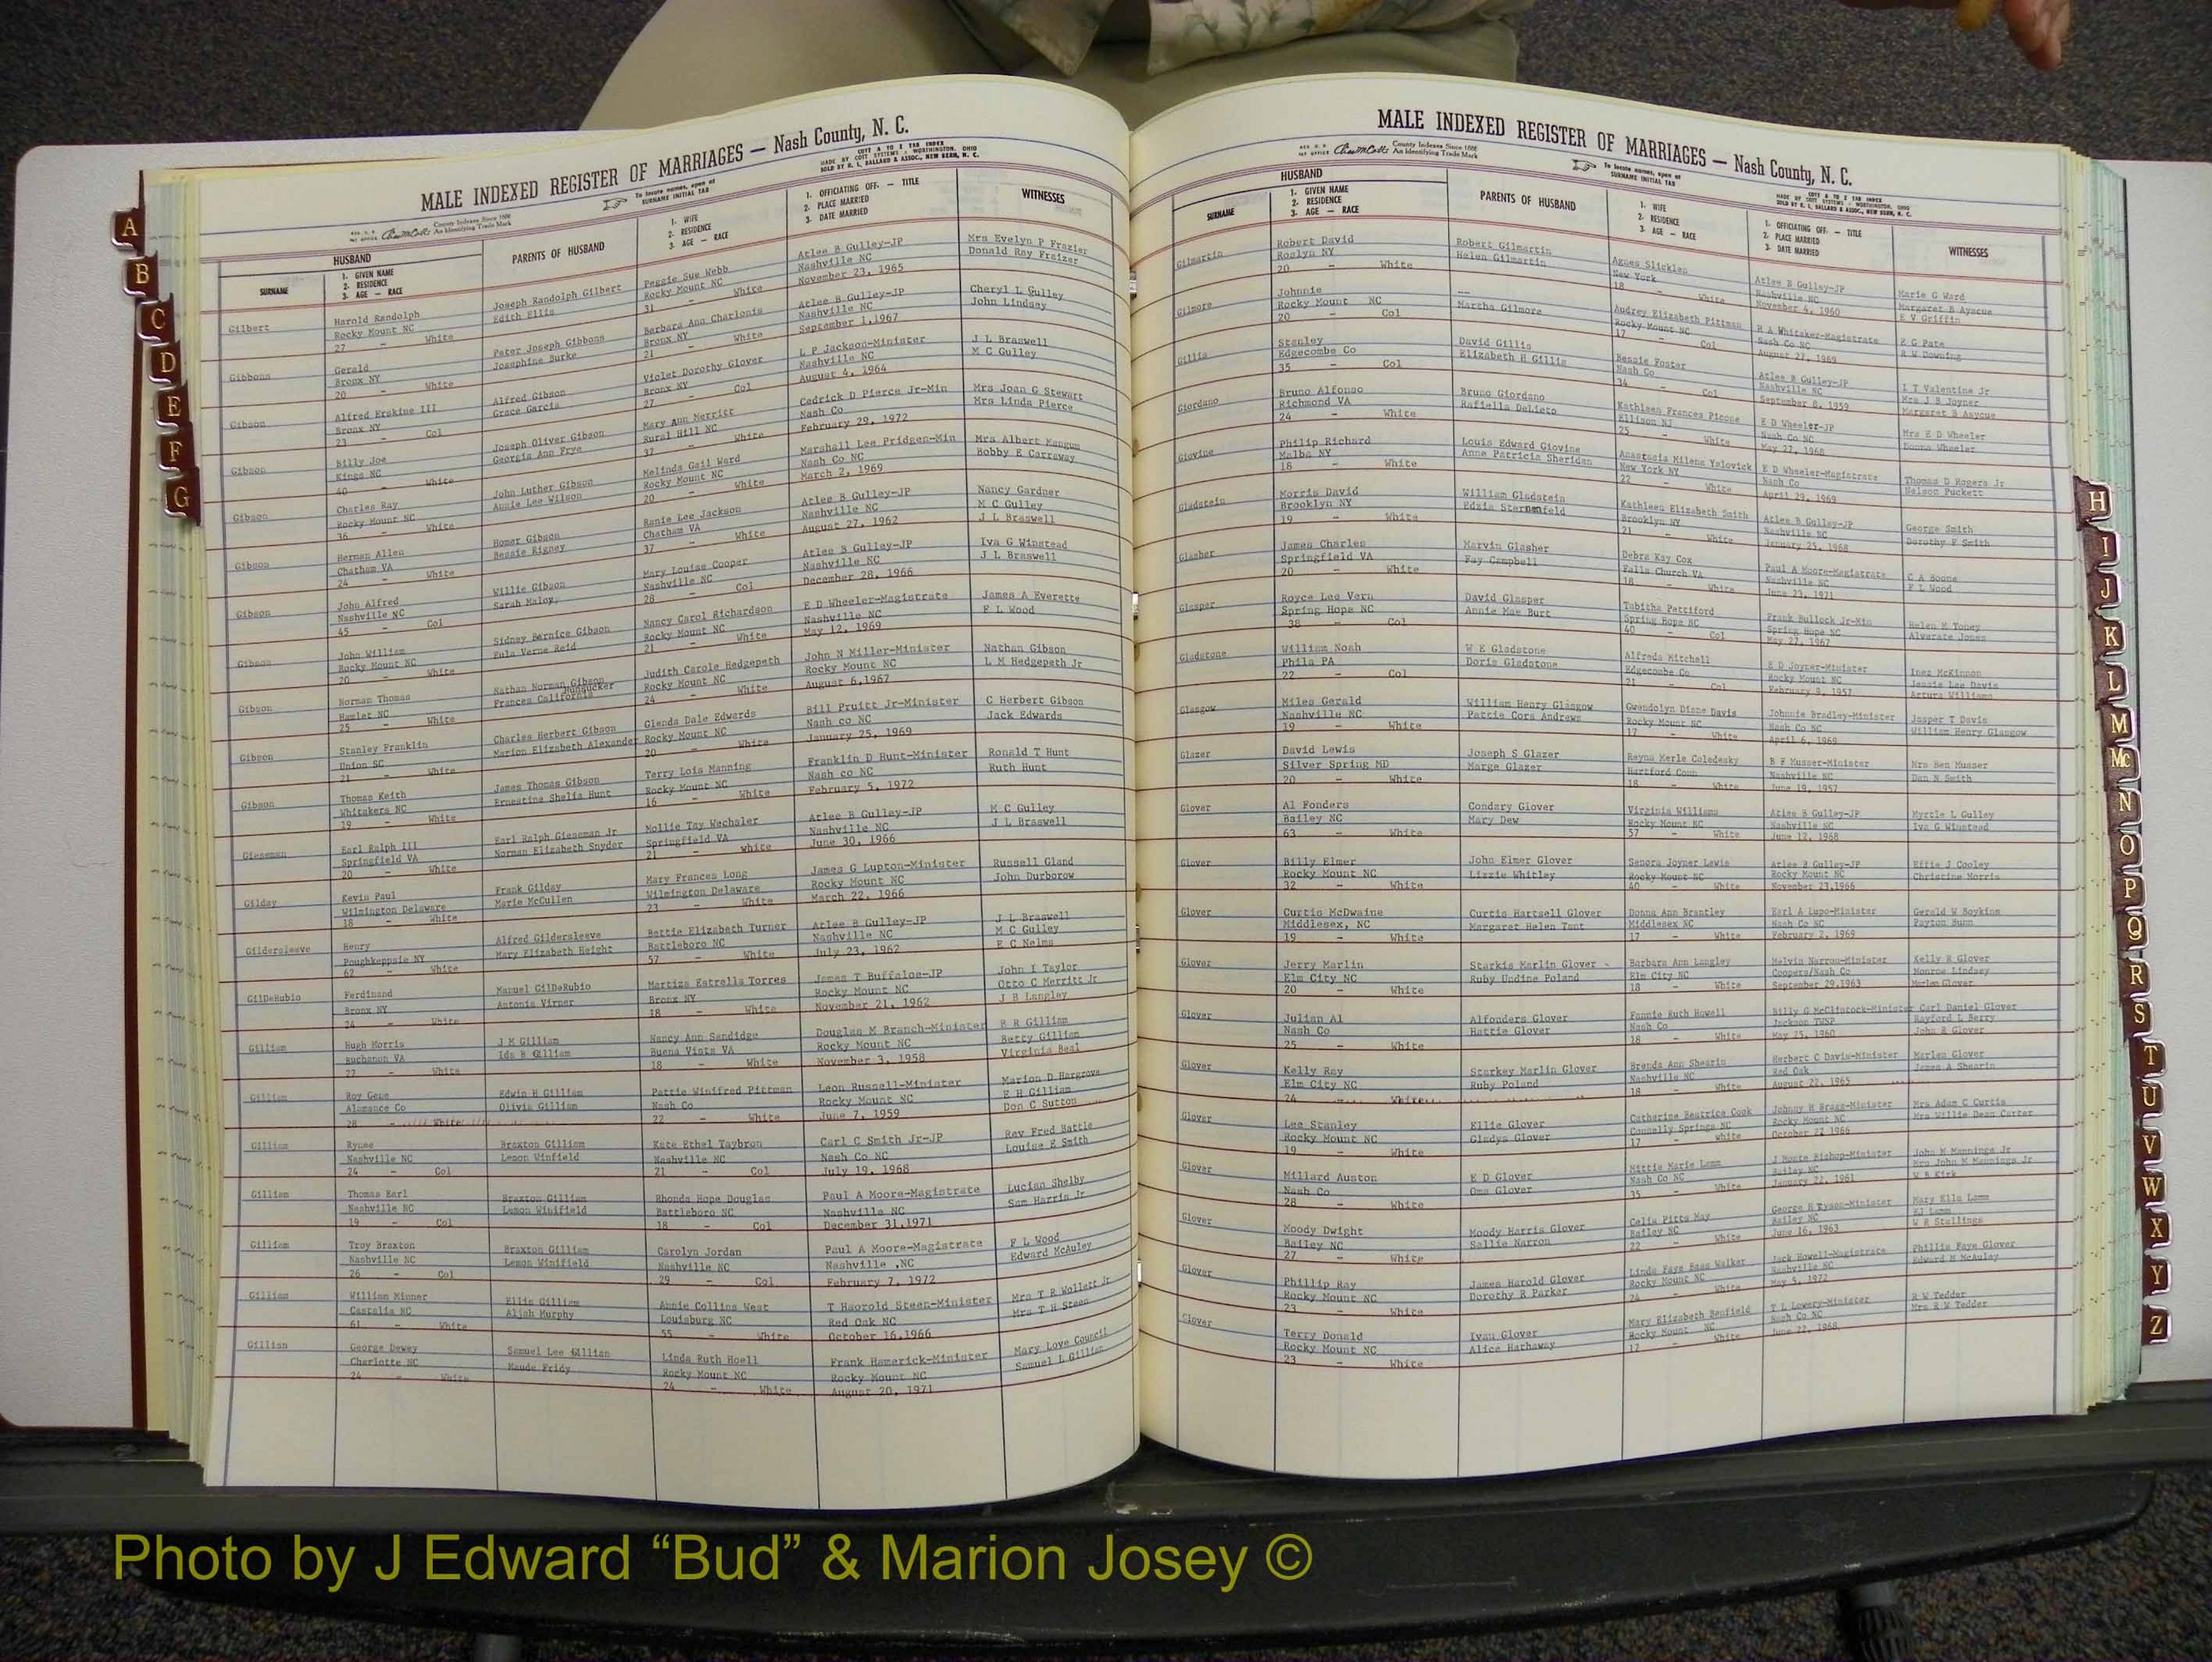 MALE INDEXED REGISTER OF MARRIAGES — Nash County, N. C.
County Indexes Since 1888
An Identifying Trade Mark
To locate names, open at
SURNAME INITIAL TAB
COTT A TO Z TAB INDEX
MADE BY COTT SYSTEMS - WORTHINGTON, OHIO
SOLD BY R. L. BALLARD & ASSOC., NEW BERN, N. C.
HUSBAND
SURNAME
1. GIVEN NAME
2. RESIDENCE
3. AGE — RACE
PARENTS OF HUSBAND
1. WIFE
2. RESIDENCE
3. AGE — RACE
1. OFFICIATING OFF. — TITLE
2. PLACE MARRIED
3. DATE MARRIED
WITNESSES
Gilbert Harold Randolph Joseph Randolph Gilbert Peggie Sue Webb Atlee B Gulley-JP Mrs Evelyn P Frazier
Rocky Mount NC Edith Ellis Rocky Mount NC Nashville NC Donald Ray Fraizer
27 - White 31 - White November 23, 1965
Gibbons Gerald Peter Joseph Gibbons Barbara Ann Charlonis Atlee B Gulley-JP Cheryl L Gulley
Bronx NY Josephine Burke Bronx NY Nashville NC John Lindsay
20 - White 21 - White September 1,1967
Gibson Alfred Erskine III Alfred Gibson Violet Dorothy Glover L P Jackson-Minister J L Braswell
Bronx NY Grace Garcia Bronx NY Nashville NC M C Gulley
23 - Col 27 - Col August 4, 1964
Gibson Billy Joe Joseph Oliver Gibson Mary Ann Merritt Cedrick D Pierce Jr-Min Mrs Joan G Stewart
Kings NC Georgia Ann Frye Rural Hill NC Nash Co Mrs Linda Pierce
40 - White 37 - White February 29, 1972
Gibson Charles Ray John Luther Gibson Melinda Gail Ward Marshall Lee Pridgen-Min Mrs Albert Mangum
Rocky Mount NC Annie Lee Wilson Rocky Mount NC Nash Co NC Bobby E Carraway
36 - White 20 - White March 2, 1969
Gibson Herman Allen Homer Gibson Ranie Lee Jackson Atlee B Gulley-JP Nancy Gardner
Chatham VA Bessie Rigney Chatham VA Nashville NC M C Gulley
24 - White 37 - White August 27, 1962 J L Braswell
Gibson John Alfred Willie Gibson Mary Louise Cooper Atlee B Gulley-JP Iva G Winstead
Nashville NC Sarah Maloy Nashville NC Nashville NC J L Braswell
45 - Col 28 - Col December 28, 1966
Gibson John William Sidney Bernice Gibson Nancy Carol Richardson E D Wheeler-Magistrate James A Everette
Rocky Mount NC Eula Verne Reid Rocky Mount NC Nashville NC F L Wood
20 - White 21 - White May 12, 1969
Gibson Norman Thomas Nathan Norman Gibson Judith Carole Hedgepeth John N Miller-Minister Nathan Gibson
Hamlet NC Frances California Hunsucker Rocky Mount NC Rocky Mount NC L M Hedgepeth Jr
25 - White 24 - White August 6,1967
Gibson Stanley Franklin Charles Herbert Gibson Glenda Dale Edwards Bill Pruitt Jr-Minister C Herbert Gibson
Union SC Marion Elizabeth Alexander Rocky Mount NC Nash co NC Jack Edwards
21 - White 20 - White January 25, 1969
Gibson Thomas Keith James Thomas Gibson Terry Lois Manning Franklin D Hunt-Minister Ronald T Hunt
Whitakers NC Ernestine Shelia Hunt Rocky Mount NC Nash co NC Ruth Hunt
19 - White 16 - White February 5, 1972
Gieseman Earl Ralph III Earl Ralph Gieseman Jr Mollie Tay Wechsler Atlee B Gulley-JP M C Gulley
Springfield VA Norman Elizabeth Snyder Springfield VA Nashville NC J L Braswell
20 - White 21 - white June 30, 1966
Gilday Kevin Paul Frank Gilday Mary Frances Long James G Lupton-Minister Russell Gland
Wilmington Delaware Marie McCullen Wilmington Delaware Rocky Mount NC John Durborow
18 - White 23 - White March 22, 1966
Gildersleeve Henry Alfred Gildersleeve Bettie Elizabeth Turner Atlee B Gulley-JP J L Braswell
Poughkeppsie NY Mary Elizabeth Height Battleboro NC Nashville NC M C Gulley
62 - White 57 - White July 23, 1962 E C Nelms
GilDeRubio Ferdinand Manuel GilDeRubio Martiza Estrella Torres James T Buffaloe-JP John I Taylor
Bronx NY Antonia Virner Bronx NY Rocky Mount NC Otto C Merritt Jr
24 - White 18 - White November 21, 1962 J B Langley
Gilliam Hugh Morris J M Gilliam Nancy Ann Sandidge Douglas M Branch-Minister B R Gilliam
Buchanon VA Ida B Gilliam Buena Vista VA Rocky Mount NC Betty Gillian
27 - White 18 - White November 3, 1958 Virginia Beal
Gilliam Roy Gene Edwin H Gilliam Pattie Winifred Pittman Leon Russell-Minister Marion D Hargrove
Alamance Co Olivia Gilliam Nash Co Rocky Mount NC E H Gilliam
28 - White 22 - White June 7, 1959 Don C Sutton
Gilliam Rynee Braxton Gilliam Kate Ethel Taybron Carl C Smith Jr-JP Rev Fred Battle
Nashville NC Lemon Winfield Nashville NC Nash Co NC Louise E Smith
24 - Col 21 - Col July 19, 1968
Gilliam Thomas Earl Braxton Gilliam Rhonda Hope Douglas Paul A Moore-Magistrate Lucian Shelby
Nashville NC Lemon Winifield Battleboro NC Nashville NC Sam Harris Jr
19 - Col 18 - Col December 31,1971
Gilliam Troy Braxton Braxton Gilliam Carolyn Jordan Paul A Moore-Magistrate F L Wood
Nashville NC Lemon Winifield Nashville NC Nashville ,NC Edward McAuley
26 - Col 29 - Col February 7, 1972
Gilliam William Minner Ellis Gilliam Annie Collins West T Haorold Steen-Minister Mrs T R Wollett Jr
Castalia NC Aliah Murphy Louisburg NC Red Oak NC Mrs T H Steen
61 - White 55 - White October 16,1966
Gillian George Dewey Samuel Lee Gillian Linda Ruth Hoell Frank Hamerick-Minister Mary Love Council
Charlotte NC Maude Fridy Rocky Mount NC Rocky Mount NC Samuel L Gillian
24 - White 24 - White August 20, 1971
A
B
C
D
E
F
G
MALE INDEXED REGISTER OF MARRIAGES — Nash County, N. C.
County Indexes Since 1888
An Identifying Trade Mark
To locate names, open at
SURNAME INITIAL TAB
COTT A TO Z TAB INDEX
MADE BY COTT SYSTEMS - WORTHINGTON, OHIO
SOLD BY R. L. BALLARD & ASSOC., NEW BERN, N. C.
HUSBAND
SURNAME
1. GIVEN NAME
2. RESIDENCE
3. AGE — RACE
PARENTS OF HUSBAND
1. WIFE
2. RESIDENCE
3. AGE — RACE
1. OFFICIATING OFF. — TITLE
2. PLACE MARRIED
3. DATE MARRIED
WITNESSES
Gilmartin Robert David Robert Gilmartin Agnes Slicklen Atlee B Gulley-JP Marie G Ward
Roslyn NY Helen Gilmartin New York Nashville NC Margaret B Ayscue
20 - White 18 - White November 4, 1960 E V Griffin
Gilmore Johnnie -- Audrey Elizabeth Pittman R A Whitaker-Magistrate E G Pate
Rocky Mount NC Martha Gilmore Rocky Mount NC Nash Co NC R W Downing
20 - Col 17 - Col August 27, 1969
Gillis Stanley David Gillis Bessie Foster Atlee B Gulley-JP I T Valentine Jr
Edgecombe Co Elizabeth H Gillis Nash Co Nashville NC Mrs J B Joyner
35 - Col 34 - Col September 8, 1959 Margaret B Asycue
Giordano Bruno Alfonso Bruno Giordano Kathleen Frances Picone E D Wheeler-JP Mrs E D Wheeler
Richmond VA Rafiella DeLieto Ellison NJ Nash Co NC Donna Wheeler
24 - White 25 - White May 27, 1968
Giovine Philip Richard Louis Edward Giovine Anastasia Milena Yalovick E D Wheeler-Magistrate Thomas D Rogers Jr
Malba NY Anne Patricia Sheridan New York NY Nash Co Nelson Puckett
18 - White 22 - White April 29, 1969
Gladstein Morris David William Gladstein Kathleen Elizabeth Smith Atlee B Gulley-JP George Smith
Brooklyn NY Edzia Sternenfeld Brooklyn NY Nashville NC Dorothy F Smith
19 - White 21 - White January 25, 1968
Glasher James Charles Marvin Glasher Debra Kay Cox Paul A Moore-Magistrate C A Boone
Springfield VA Fay Campbell Falls Church VA Nashville NC F L Wood
20 - White 18 - White June 23, 1971
Glasper Royce Lee Vern David Glasper Tabitha Pettiford Frank Bullock Jr-Min Helen M Toney
Spring Hope NC Annie Mae Burt Spring Hope NC Spring Hope NC Alverate Jones
38 - Col 40 - Col May 27, 1967
Gladstone William Noah W E Gladstone Alfreda Mitchell E D Joyner-Minister Inez McKinnon
Phila PA Doris Gladstone Edgecombe Co Rocky Mount NC Jessie Lee Davis
22 - Col 21 - Col February 9, 1957 Artura Williams
Glasgow Miles Gerald William Henry Glasgow Gwendolyn Diane Davis Johnnie Bradley-Minister Jasper T Davis
Nashville NC Pattie Cors Andrews Rocky Mount NC Nash Co NC William Henry Glasgow
19 - White 17 - White April 6, 1969
Glazer David Lewis Joseph S Glazer Reyna Merle Coledesky B F Musser-Minister Mrs Ben Musser
Silver Spring MD Marge Glazer Hartford Conn Nashville NC Dan N Smith
20 - White 18 - White June 19, 1957
Glover Al Fonders Condary Glover Virginia Williams Atlee B Gulley-JP Myrtle L Gulley
Bailey NC Mary Dew Rocky Mount NC Nashville NC Iva G Winstead
63 - White 57 - White June 12, 1968
Glover Billy Elmer John Elmer Glover Senora Joyner Lewis Atlee B Gulley-JP Effie J Cooley
Rocky Mount NC Lizzie Whitley Rocky Mount NC Rocky Mount NC Christine Morris
32 - White 40 - White November 23,1966
Glover Curtis McDwaine Curtis Hartsell Glover Donna Ann Brantley Earl A Lupo-Minister Gerald W Boykins
Middlesex, NC Margaret Helen Tant Middlesex NC Nash Co NC Payton Bunn
19 - White 17 - White February 2, 1969
Glover Jerry Marlin Starkis Marlin Glover Barbara Ann Langley Melvin Narron-Minister Kelly R Glover
Elm City NC Ruby Undine Poland Elm City NC Coopers/Nash Co Monroe Lindsey
20 - White 18 - White September 29,1963 Marlen Glover
Glover Julian Al Alfonders Glover Fannie Ruth Howell Billy G McClintock-Minister Carl Daniel Glover
Nash Co Hattie Glover Nash Co Jackson TWSP Rayford L Berry
25 - White 18 - White May 25, 1960 John R Glover
Glover Kelly Ray Starkey Marlin Glover Brenda Ann Shearin Herbert C Davis-Minister Marlen Glover
Elm City NC Ruby Poland Nashville NC Red Oak James A Shearin
24 - White 18 - White August 22, 1965
Glover Lee Stanley Ellie Glover Catherine Beatrice Cook Johnny H Bragg-Minister Mrs Adam C Curtis
Rocky Mount NC Gladys Glover Connelly Springs NC Rocky Mount NC Mrs Willie Dean Carter
19 - White 17 - white October 22 1966
Glover Millard Auston E D Glover Mittie Marie Lamm J Monte Bishop-Minister John M Mannings Jr
Nash Co Oma Glover Nash Co NC Bailey NC Mrs John M Mannings Jr
28 - White 35 - White January 22, 1961 W B Kirk
Glover Moody Dwight Moody Harris Glover Celia Pitts May George H Tyson-Minister Mary Ella Lamm
Bailey NC Sallie Narron Bailey NC Bailey NC EJ Lamm
27 - White 22 - White June 16, 1963 W R Stallings
Glover Phillip Ray James Harold Glover Linda Faye Bass Walker Jack Howell-Magistrate Phillis Faye Glover
Rocky Mount NC Dorothy R Parker Rocky Mount NC Nashville NC Edward M McAuley
23 - White 24 - White May 5, 1972
Glover Terry Donald Ivan Glover Mary Elizabeth Benfield T L Lowery-Minister R W Tedder
Rocky Mount NC Alice Hathaway Rocky Mount NC Nash Co NC Mrs R W Tedder
23 - White 17 - White June 22, 1968
H
I
J
K
L
M
Mc
N
O
P
Q
R
S
T
U
V
W
X
Y
Z
Photo by J Edward “Bud” & Marion Josey ©